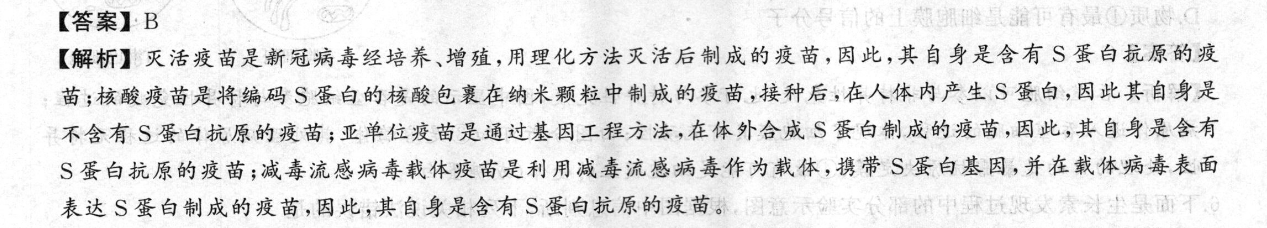 【答案】B
【解析】灭活疫苗是新冠病毒经培养、增殖,用理化方法灭活后制成的疫苗,因此,其自身是含有 S 蛋白抗原的疫
苗;核酸疫苗是将编码 S 蛋白的核酸包裹在纳米颗粒中制成的疫苗,接种后,在人体内产生 S 蛋白,因此其自身是
不含有 S 蛋白抗原的疫苗;亚单位疫苗是通过基因工程方法,在体外合成 S 蛋白制成的疫苗,因此,其自身是含有
S 蛋白抗原的疫苗;减毒流感病毒载体疫苗是利用减毒流感病毒作为载体,携带 S 蛋白基因,并在载体病毒表面
表达 S 蛋白制成的疫苗,因此,其自身是含有 S 蛋白抗原的疫苗。